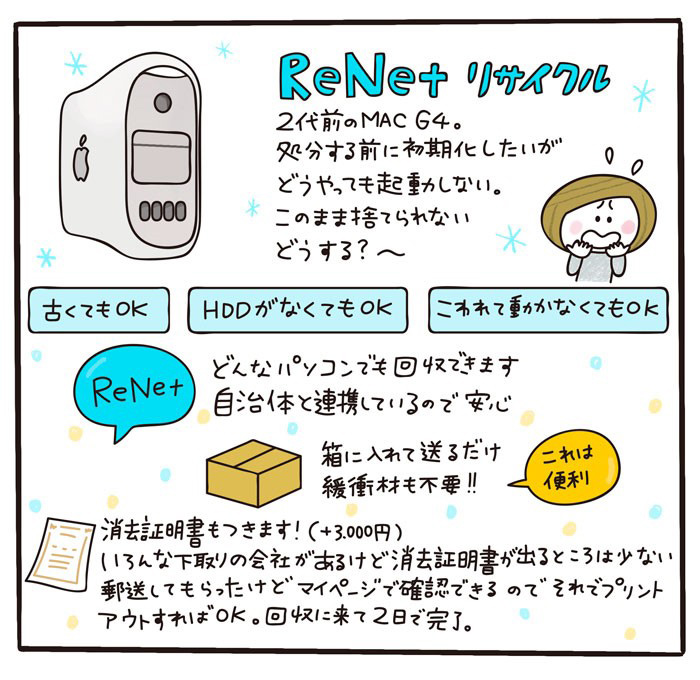 ReNet リサイクル
2代前のMAC G4。
処分する前に初期化したいが
どうやっても起動しない。
このまま捨てられない
どうする?〜
古くてもOK
HDDがなくてもOK
こわれて動かなくてもOK
ReNet
どんなパソコンでも回収できます
自治体と連携しているので安心
箱に入れて送るだけ
緩衝材も不要!!
これは
便利
消去証明書もつきます!(+3.000円)
いろんな下取りの会社があるけど消去証明書が出るところは少ない
郵送してもらったけどマイページで確認できるのでそれでプリント
アウトすればOK。回収に来て2日で完了。